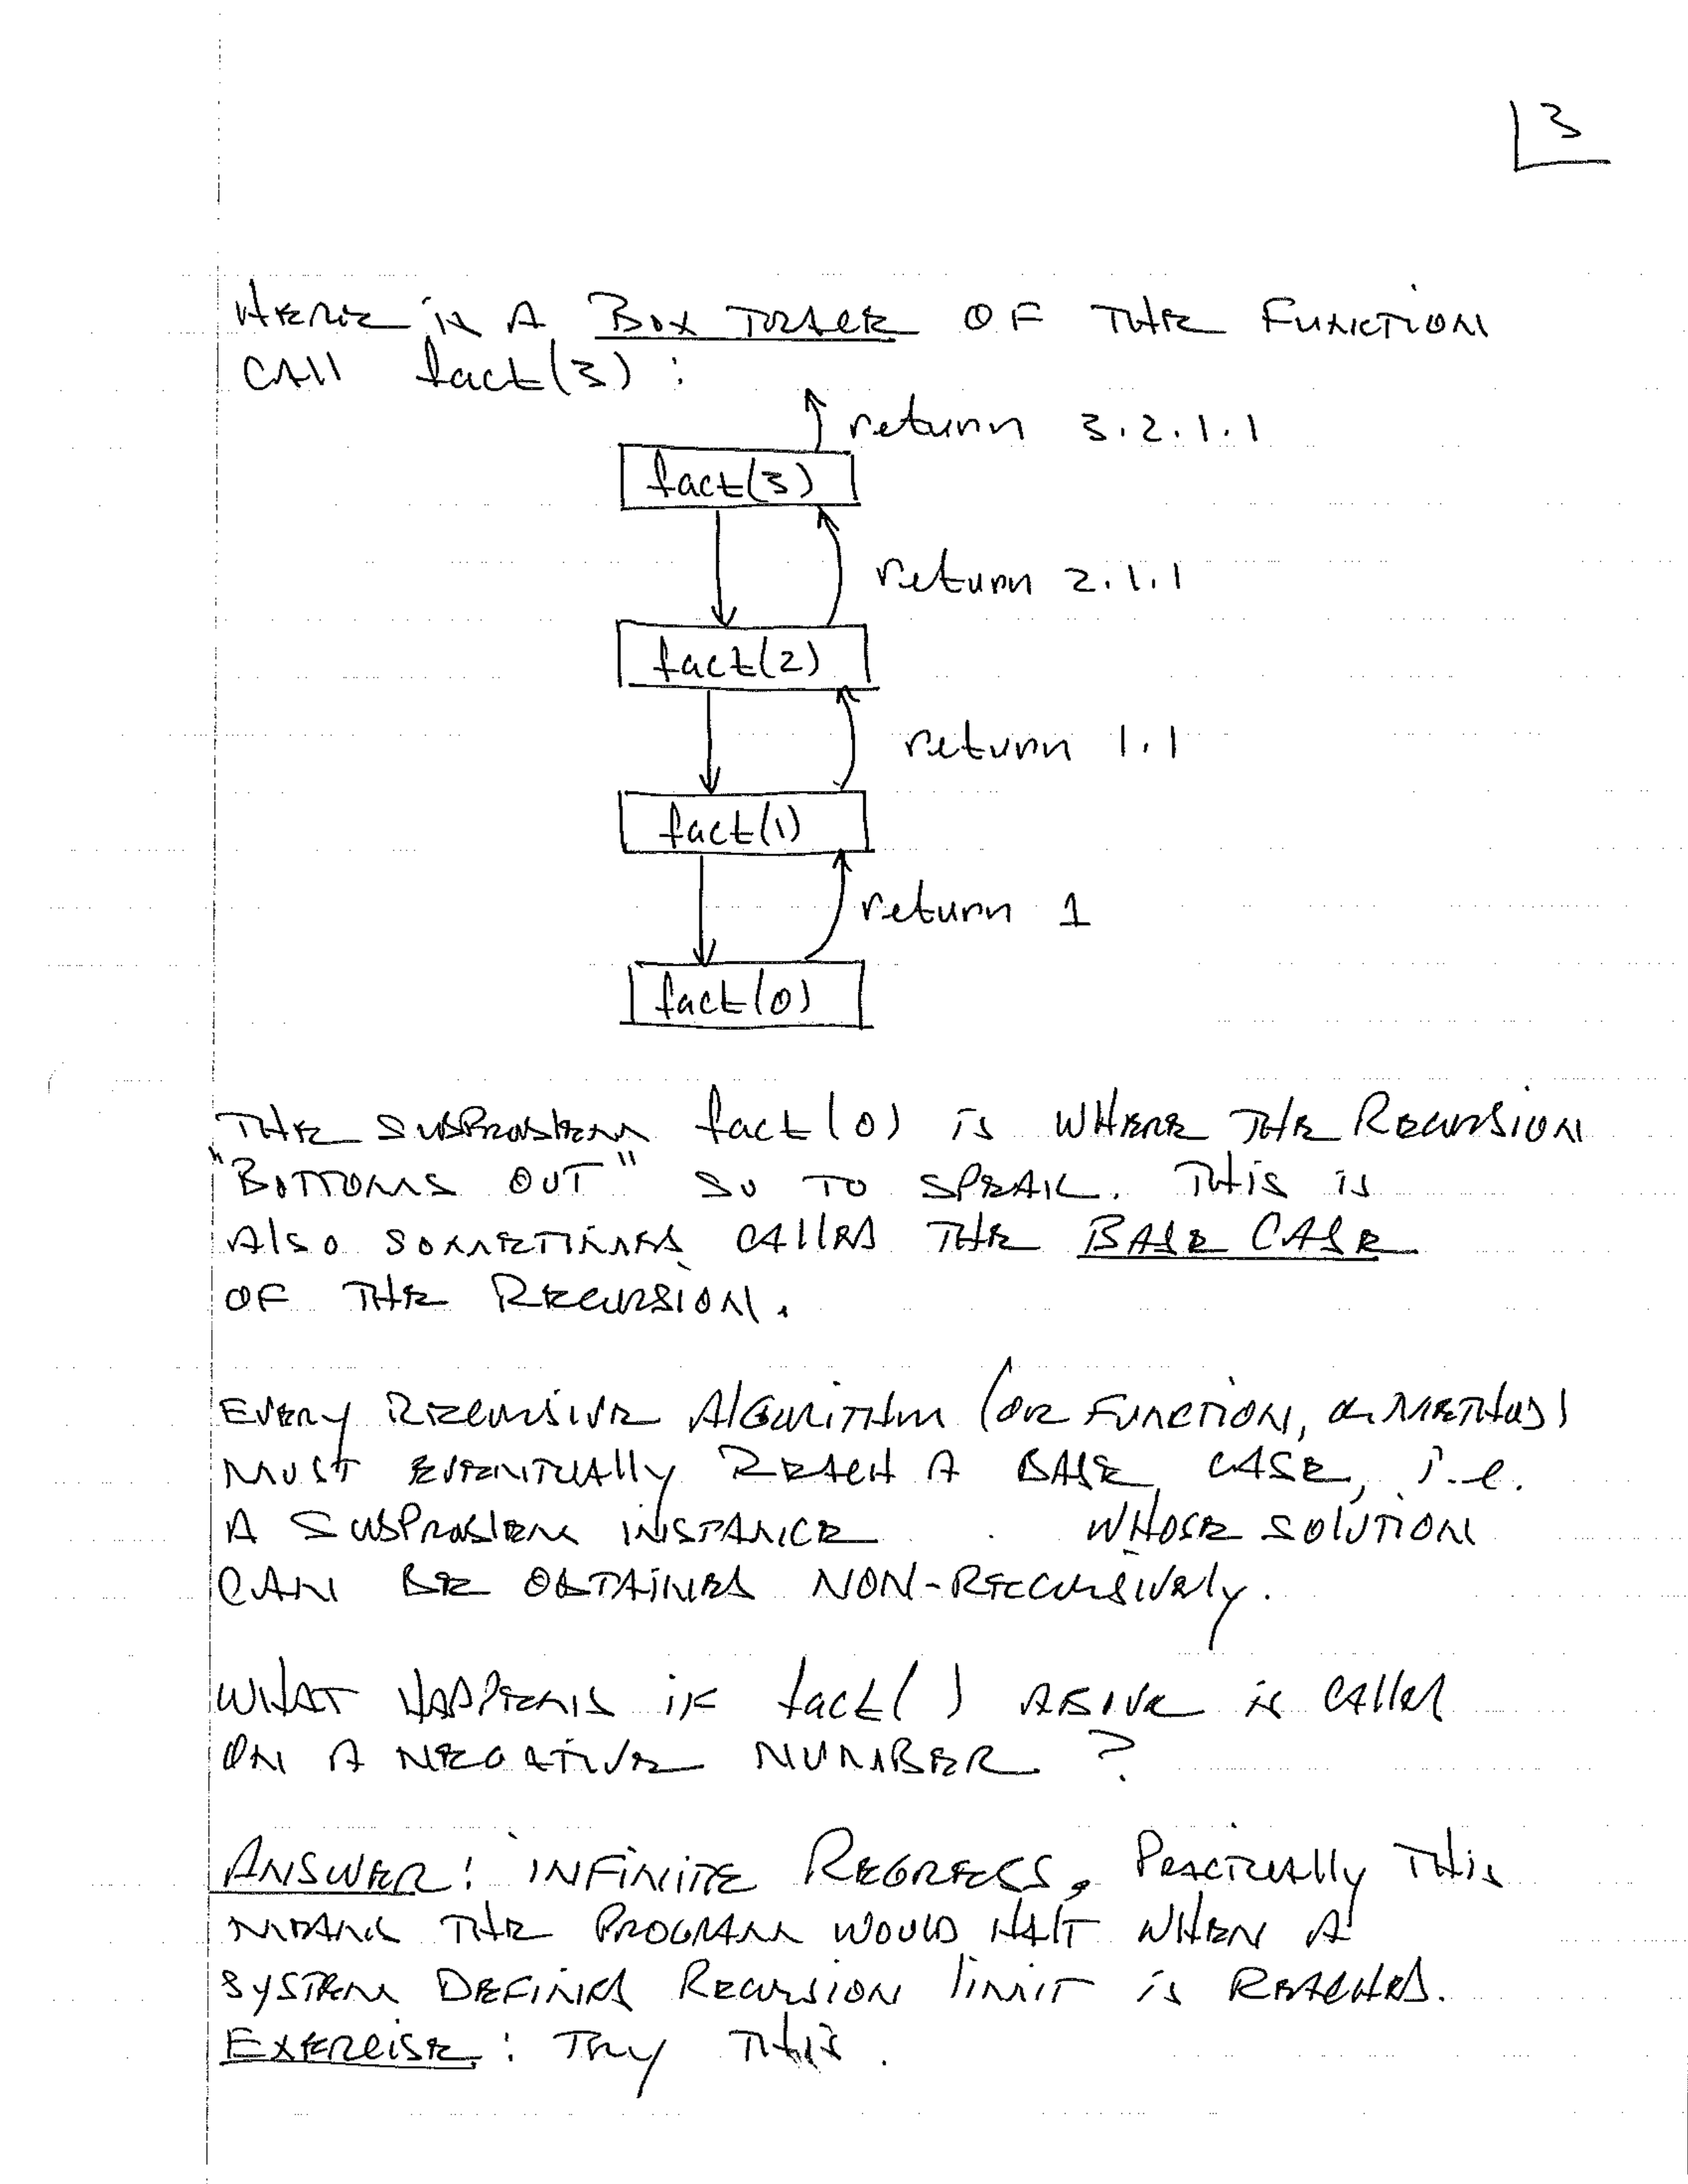 3
HERE is A BOX TRACE OF THE FUNCTION
CALL fact(3):
return 3.2.1.1
fact(3)
return 2.1.1
fact(2)
return 1.1
fact(1)
return 1
fact(0)
THE SUBPROBLEM fact(0) is WHERE THE RECURSION
"BOTTOMS OUT" SO TO SPEAK. THIS is
ALSO SOMETIMES CALLED THE BASE CASE
OF THE RECURSION.
EVERY RECURSIVE ALGORITHM (OR FUNCTION, OR METHOD)
MUST EVENTUALLY REACH A BASE CASE, i.e.
A SUBPROBLEM INSTANCE WHOSE SOLUTION
CAN BE OBTAINED NON-RECCURSIVELY.
WHAT HAPPENS IF fact() ABOVE is CALLED
ON A NEGATIVE NUMBER?
ANSWER: INFINITE REGRESS. PRACTICALLY THIS
MEANS THE PROGRAM WOULD HALT WHEN A
SYSTEM DEFINED RECURSION LIMIT is REACHED.
EXERCISE: TRY THIS.